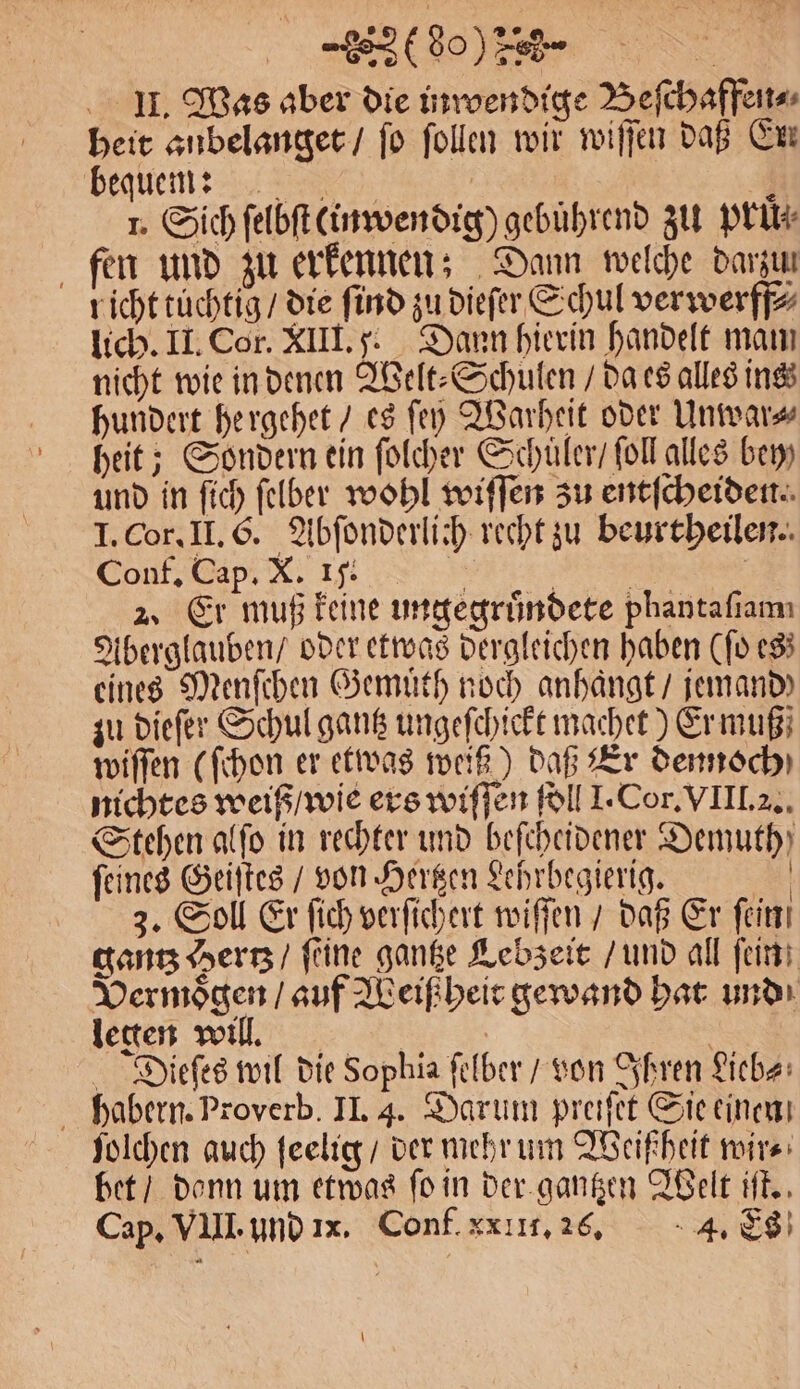 (80)
II. Was aber die inwendige Beſchaffen⸗
heit anbelanget / ſo ſollen wir wiſſen daß Er
bequem:
1. Sich ſelbſt (inwendig) gebuͤhrend zu pruͤ⸗
fen und zu erkennen; Dann welche darzu
nicht tuͤchtig / die ſind zu dieſer Schul verwerff⸗
lich. II. Cor. XIII. 5. Dann hierin handelt man
nicht wie in denen Welt⸗Schulen / da es alles ins
hundert hergehet / es ſey Warheit oder Unwar⸗
heit; Sondern ein ſolcher Schuͤler / ſoll alles bey
und in ſich ſelber wohl wiſſen zu entſcheiden.
I. Cor. II. 6. Abſonderlich recht zu beurtheilen.
Conf. Cap. X. 15.
2. Er muß keine ungegruͤndete phantaſiam
Aberglauben / oder etwas dergleichen haben (ſo es
eines Menſchen Gemuͤth noch anhaͤngt / jemand
zu dieſer Schul gantz ungeſchickt machet) Er muß
wiſſen (ſchon er etwas weiß) daß Er dennoch
nichtes weiß / wie ers wiſſen ſoll I. Cor. VIII. 2.
Stehen alſo in rechter und beſcheidener Demuth
ſeines Geiſtes / von Hertzen Lehrbegierig.
3. Soll Er ſich verſichert wiſſen / daß Er ſein
gantz Hertz / ſeine gantze Lebzeit / und all ſein
Vermoͤgen / auf Weißheit gewand hat und
legen will.
Dieſes wil die Sophia ſelber / von Ihren Lieb⸗
habern. Proverb. II. 4. Darum preiſet Sie einen
ſolchen auch ſeelig / der mehr um Weißheit wir⸗
bet / denn um etwas ſo in der gantzen Welt iſt.
Cap. VIII. und IX. Conf. XXIII, 26. 4. Es